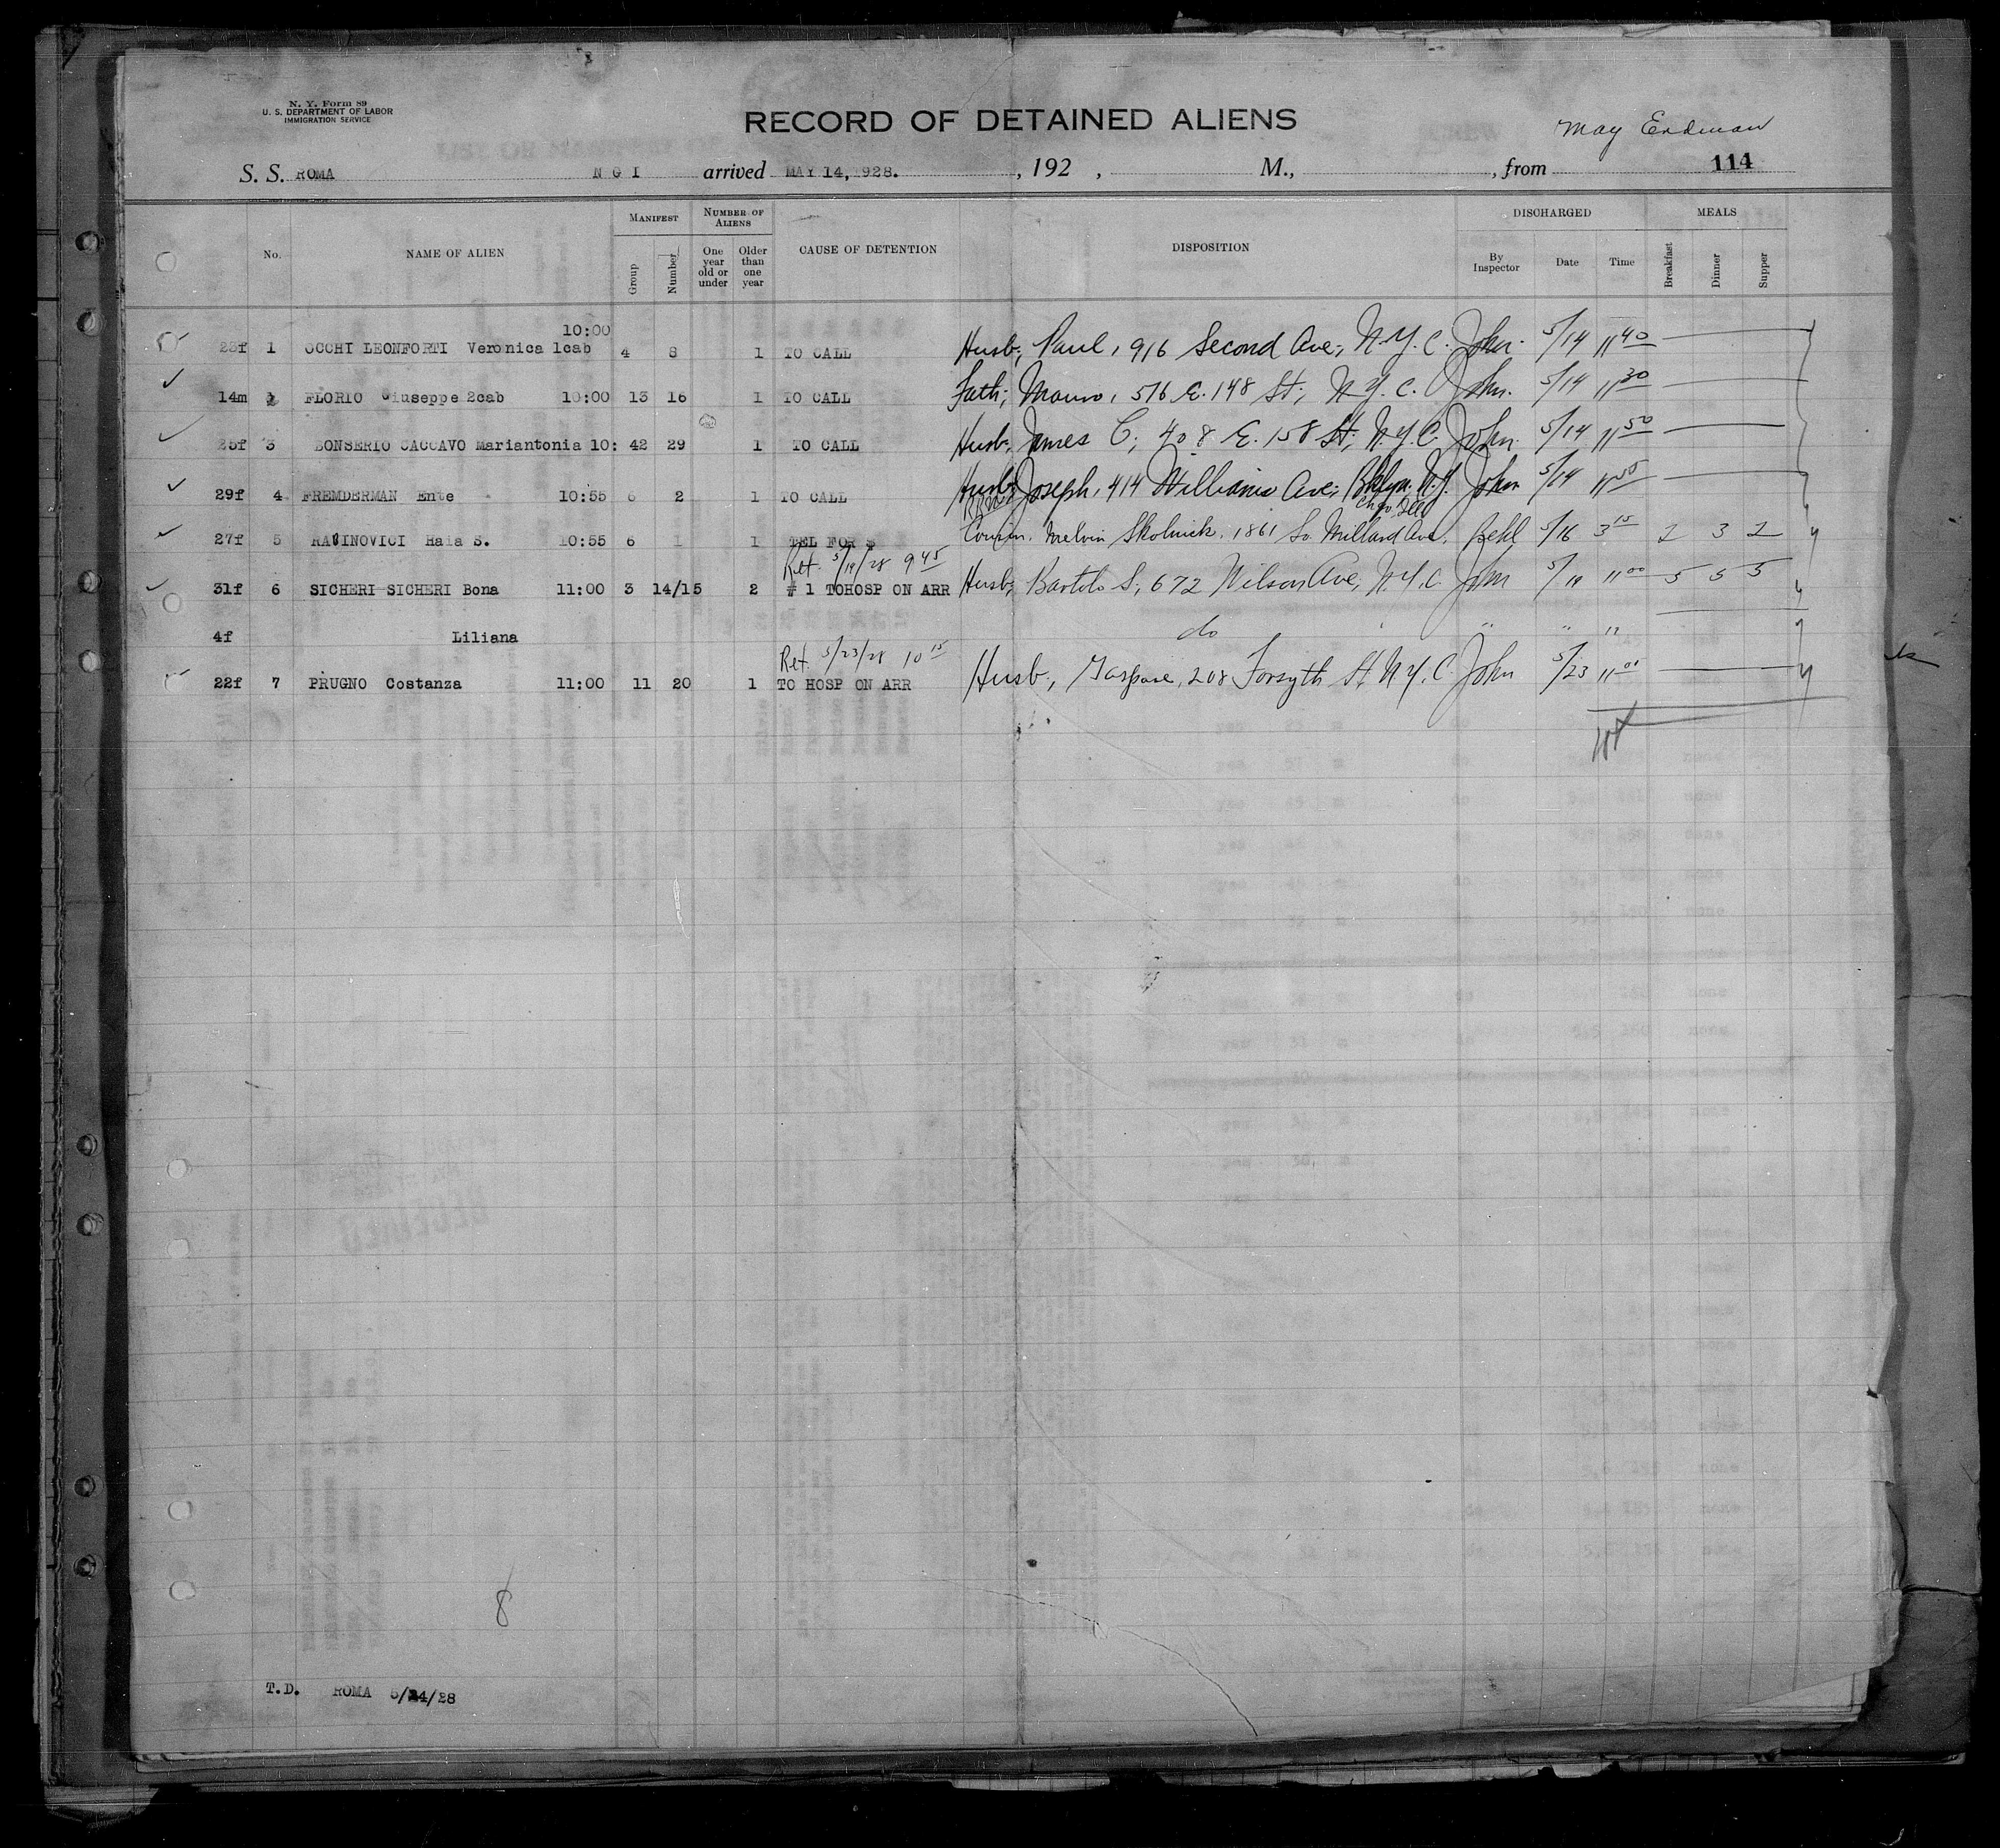 N. Y. Form 89
U. S. DEPARTMENT OF LABOR
IMMIGRATION SERVICE
RECORD OF DETAINED ALIENS
May Erdman
S. S. ROMA N G I arrived MAY 14, 1928. , 192 , M., , from 114
No. NAME OF ALIEN MANIFEST Group Number NUMBER OF ALIENS One year old or under Older than one year CAUSE OF DETENTION DISPOSITION DISCHARGED By Inspector Date Time MEALS Breakfast Dinner Supper
10:00
1 OCCHI LEONFORTI Veronica 1cab 4 8 1 TO CALL Husb; Paul, 916 Second Ave; N.Y.C. John. 5/14 11 40
14m FLORIO Giuseppe 2cab 10:00 13 16 1 TO CALL Fath; Mauro, 516 E. 148 St; N.Y.C. John. 5/14 11 30
25f 3 BONSERIO CACCAVO Mariantonia 10: 42 29 1 TO CALL Husb; James C; 408 E. 158 St; N.Y.C. John. 5/14 11 50
29f 4 FREMDERMAN Ente 10:55 6 2 1 TO CALL Husb; Joseph, 414 Williams Ave; Bklyn. N.Y. John 5/14 11 55
Chgo. Ill
27f 5 RABINOVICI Haia S. 10:55 6 1 1 TEL FOR $ Cousin. Melvin Skolnick. 1861 So. Millard Ave. 5/16 3 15 2 3 2
Ret. 5/19/28 9 45
31f 6 SICHERI SICHERI Bona 11:00 3 14/15 2 #1 TOHOSP ON ARR Husb; Bartolo S, 672 Wilson Ave, N.Y.C. John 5/19 11 00 5 5 5
4f Liliana do " " "
Ret. 5/23/28 10 15
22f 7 PRUGNO Costanza 11:00 11 20 1 TO HOSP ON ARR Husb, Gaspare, 208 Forsyth St N.Y.C. John 5/23 11 00
8
T.D. ROMA 5/14/28